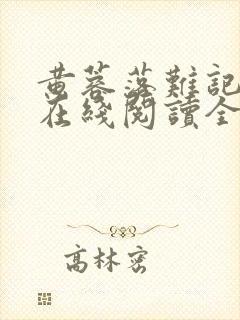 黄蓉落難記
在綫閱讀全
高林密